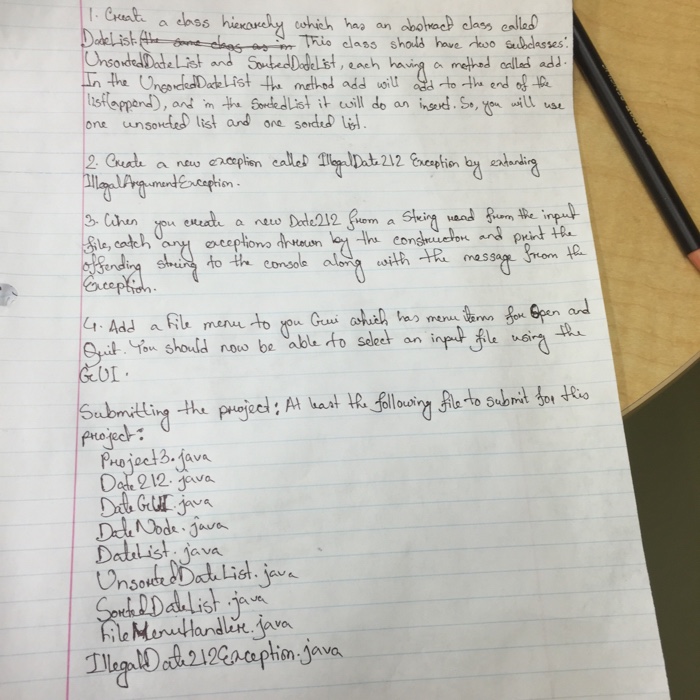 1. Create a class hierarchy which has an abstract class called
DateList. This class should have two subclasses:
UnsortedDateList and SortedDateList, each having a method called add.
In the UnsortedDateList the method add will add to the end of the
list(append), and in the SortedList it will do an insert. So, you will use
one unsorted list and one sorted list.
2. Create a new exception called IllegalDate212 Exception by extending
IllegalArgumentException.
3. When you create a new Date212 from a String read from the input
file, catch any exceptions thrown by the constructor and print the
offending string to the console along with the message from the
Exception.
4. Add a File menu to you Gui which has menu items for Open and
Quit. You should now be able to select an input file using the
GUI.
Submitting the project: At least the following file to submit for this
project:
Project3.java
Date212.java
DateGUI.java
DateNode.java
DateList.java
UnsortedDateList.java
SortedDateList.java
FileMenuHandler.java
IllegalDate212Exception.java